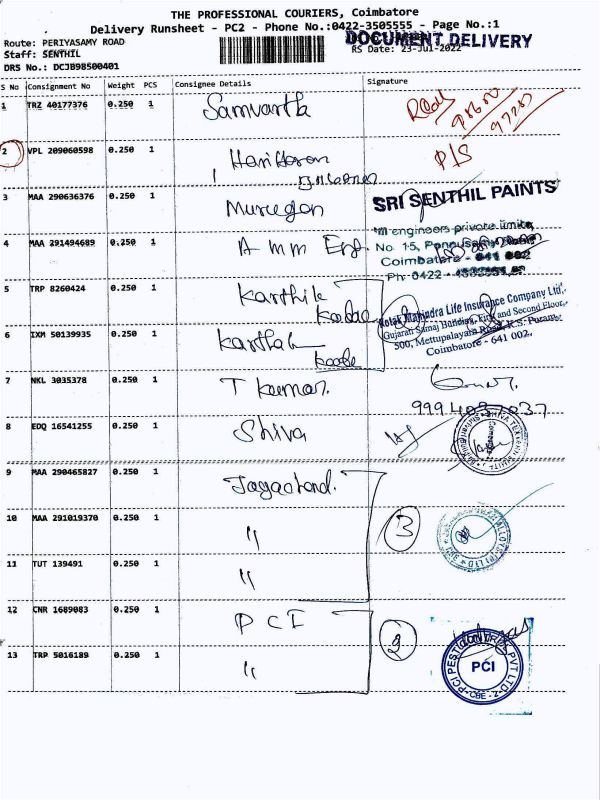 THE PROFESSIONAL COURIERS, Coimbatore
Delivery Runsheet - PC2 - Phone No.:0422-3505555 - Page No.:1
Route: PERIYASAMY ROAD
DOCUMENT DELIVERY
Staff: SENTHIL
RS Date: 23-Jul-2022
DRS No.: DCJB98500401
S No Consignment No Weight PCS Consignee Details Signature
1 TRZ 40177376 0.250 1 Samvartha
2 VPL 209060598 0.250 1 Hariharan P/S
3 MAA 290636376 0.250 1 Murugan
SRI SENTHIL PAINTS
4 MAA 291494689 0.250 1 A m m Eng.
engineers private limited
No. 15,
Coimbatore - 641 002
Ph: 0422 -
5 TRP 8260424 0.250 1 Karthik
Kotak
Kotak Mahindra Life Insurance Company Ltd.,
Gujarati Samaj Building, First and Second Floor,
500, Mettupalayam Road, R.S. Puram,
Coimbatore - 641 002.
6 IXM 50139935 0.250 1 Karthik
Kotak
7 NKL 3035378 0.250 1 T Kumar.
9994037037
8 EDQ 16541255 0.250 1 Shiva
9 MAA 290465827 0.250 1 Jagachand.
10 MAA 291019370 0.250 1 " 3
11 TUT 139491 0.250 1 "
12 CNR 1689083 0.250 1 P C I
2
13 TRP 5016189 0.250 1 "
PCI PEST CONTROL PVT LTD
PCI
CBE - 2